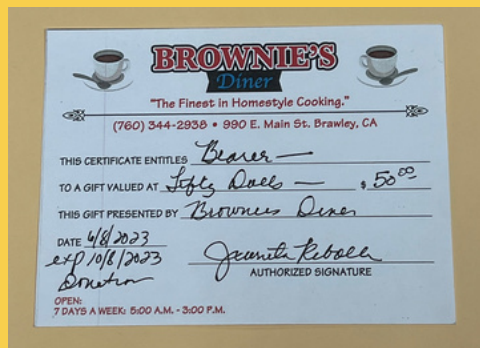 BROWNIE'S
Diner
"The Finest in Homestyle Cooking."
(760) 344-2938 • 990 E. Main St. Brawley, CA
THIS CERTIFICATE ENTITLES Bearer —
TO A GIFT VALUED AT Fifty Dolls — $ 50 00
THIS GIFT PRESENTED BY Brownies Diner
DATE 6/8/2023
exp 10/8/2023
Donation
AUTHORIZED SIGNATURE
OPEN:
7 DAYS A WEEK: 5:00 A.M. - 3:00 P.M.